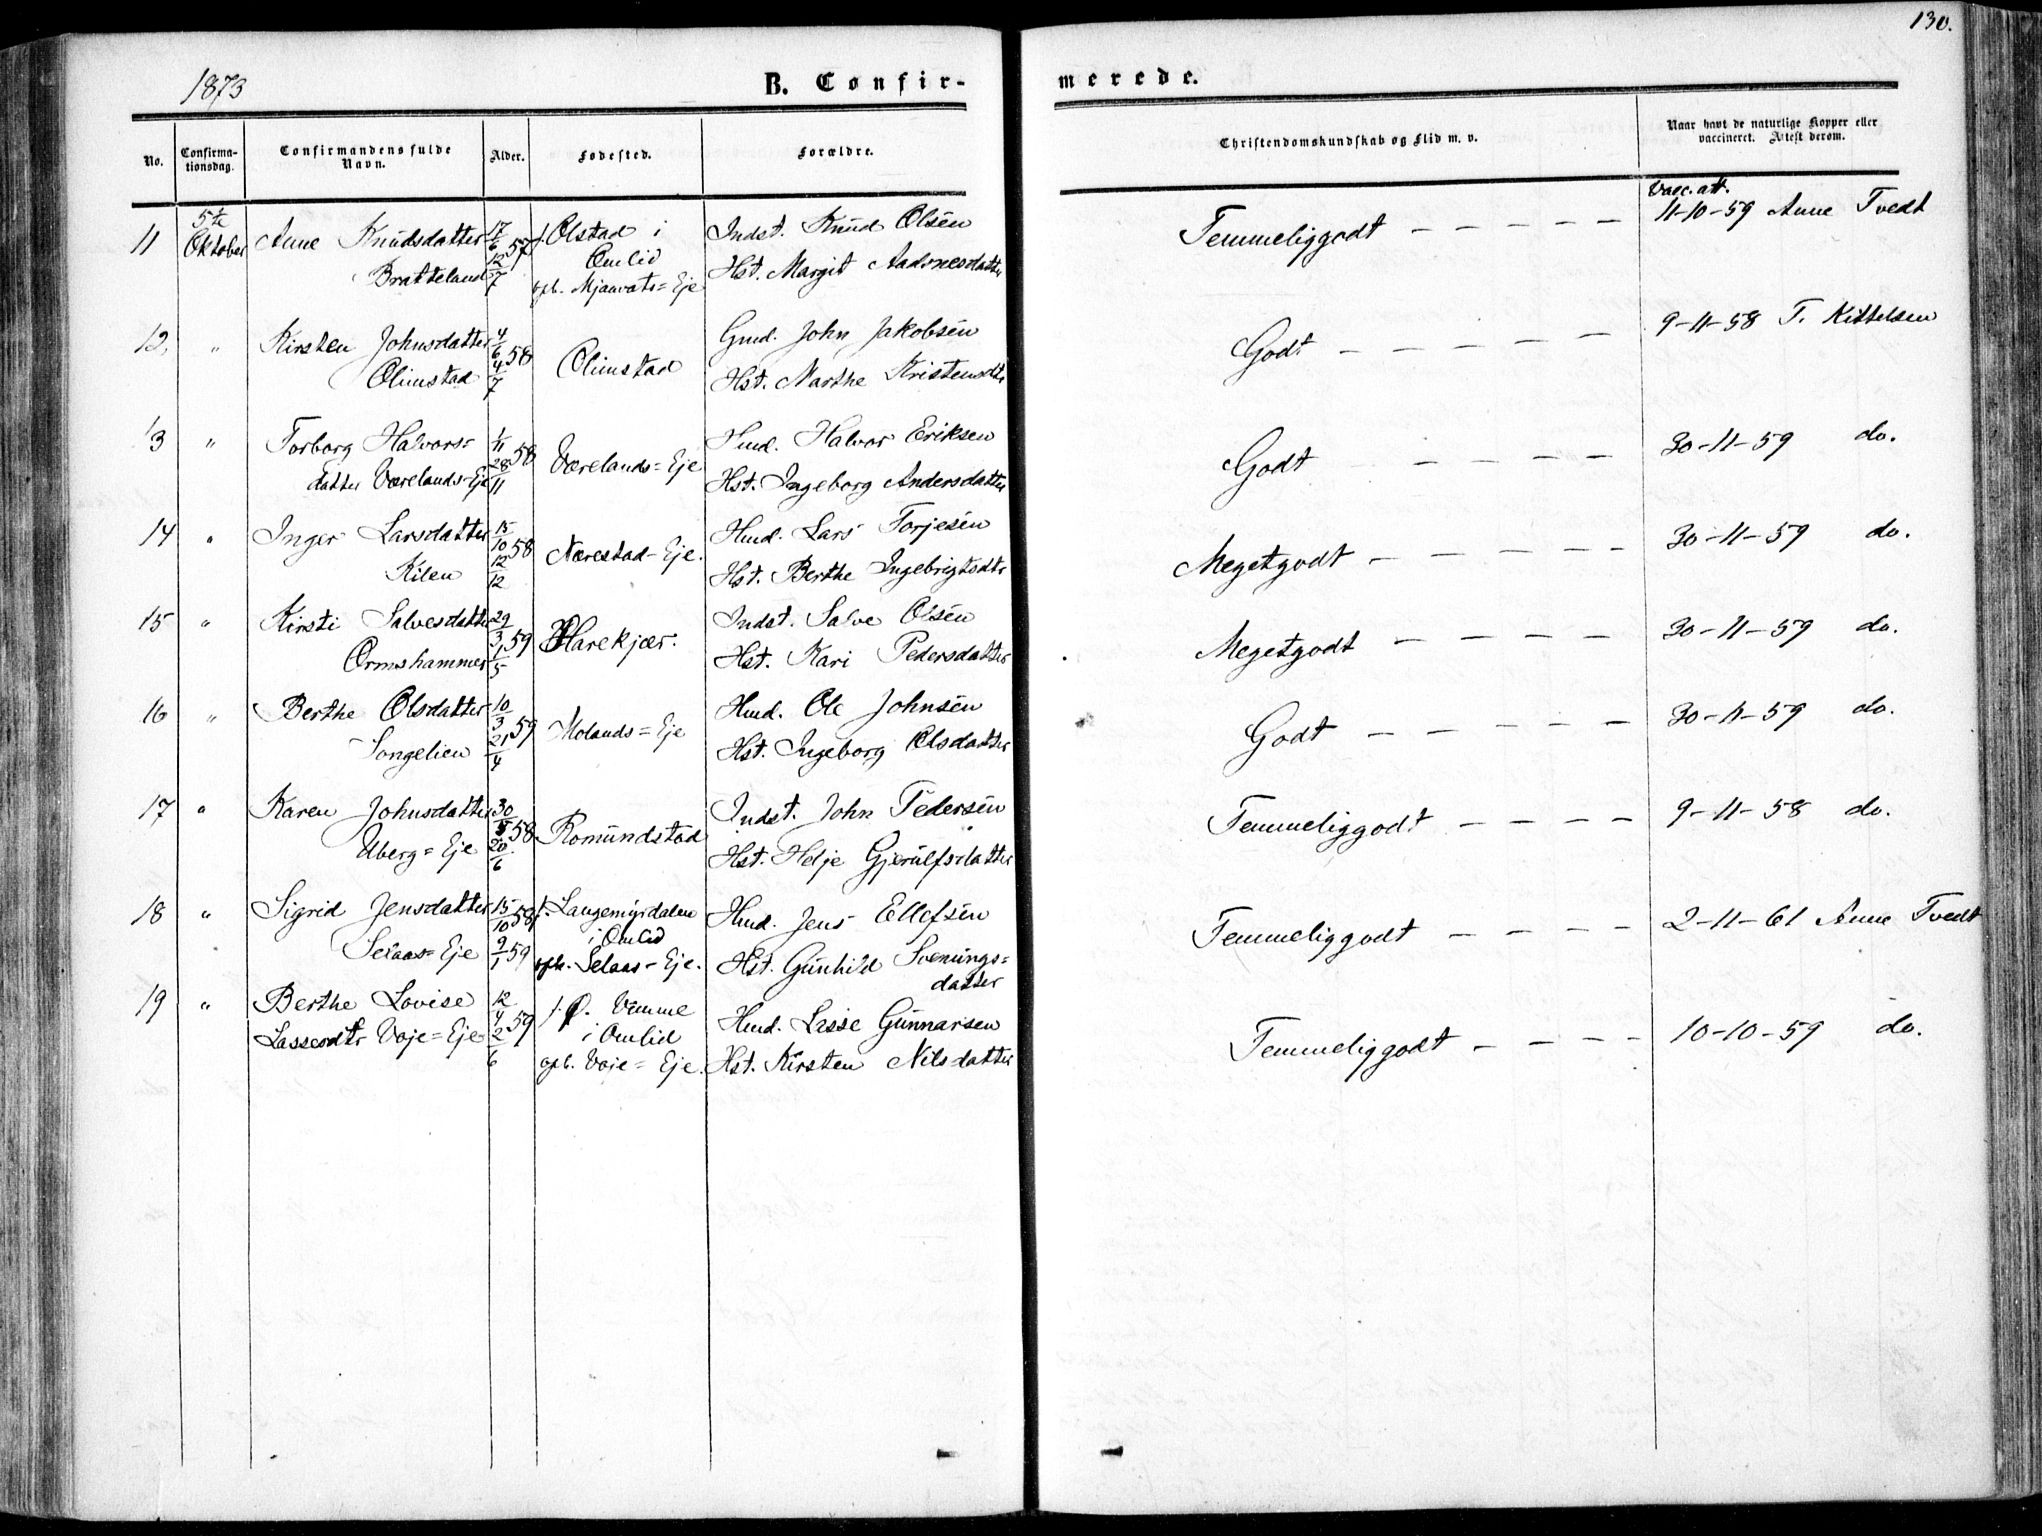 130.
1873
B. Confir-
merede.
No.
Confirma-
tionsdag.
Confirmandens fulde
Navn.
Alder.
Fødested.
Forældre.
Christendomskundskab og Flid m. v.
Naar havt de naturlige Kopper eller
vaccineret. Attest derom.
11
5te
Oktober
Anne Knudsdatter
Bratteland
17/6 57
12/7
f. Olstad i
Omlid
opb. Mjaavats=Eje
Indst. Knud Olsen
Hst. Margit Aadnesdatter
Temmeliggodt — — — —
Vacc. att.
11-10-59 Anne Tvedt
12, "
Kirsten Johnsdatter
Olimstad
4/6 58
4/7
Olimstad
Gmd. John Jakobsen
Hst. Marthe Kristensdtr
Godt — — — — —
9-11-58 T. Kittelsen
13 "
Torborg Halvors-
datter Værelands-Eje
1/11 58
28/11
Værelands=Eje
Hmd. Halvor Eriksen
Hst. Ingeborg Andersdatter
Godt — — — —
30-11-59 do.
14 "
Inger Larsdatter
Kilen
15/10 58
12/12
Nærestad-Eje.
Hmd. Lars Torjesen
Hst. Berthe Ingebrigtsdtr
Megetgodt — — — — —
30-11-59 do.
15 "
Kirsti Salvesdatter
Ormshammer
29/3 59
1/5
Harekjær.
Indst. Salve Olsen
Hst. Kari Pedersdatter
Megetgodt — — — — —
30-11-59 do.
16 "
Berthe Olsdatter
Songelien
10/3 59
21/4
Molands=Eje
Hmd. Ole Johnsen
Hst. Ingeborg Olsdatter
Godt — — — — —
30-11-59 do.
17 "
Karen Johnsdatter
Uberg=Eje
30/5 58
20/6
Romundstad
Indst. John Pedersen
Hst. Helje Gjerulfsdatter
Temmeliggodt — — — —
9-11-58 do.
18 "
Sigrid Jensdatter
Selaas=Eje
15/10 58
9/1 59
f. Langemyrdalen
i Omlid
opb. Selaas-Eje.
Hmd. Jens Ellefsen
Hst. Gunhild Svenings=
datter
Temmeliggodt — — — —
2-11-61 Anne Tvedt
19 "
Berthe Lovise
Lassesdtr Voje=Eje
12/4 59
2/6
f. Ø. Vimme
i Omlid
opb. Voje=Eje.
Hmd. Lasse Gunnarsen
Hst. Kirsten Nilsdatter
Temmeliggodt — — — —
10-10-59 do.